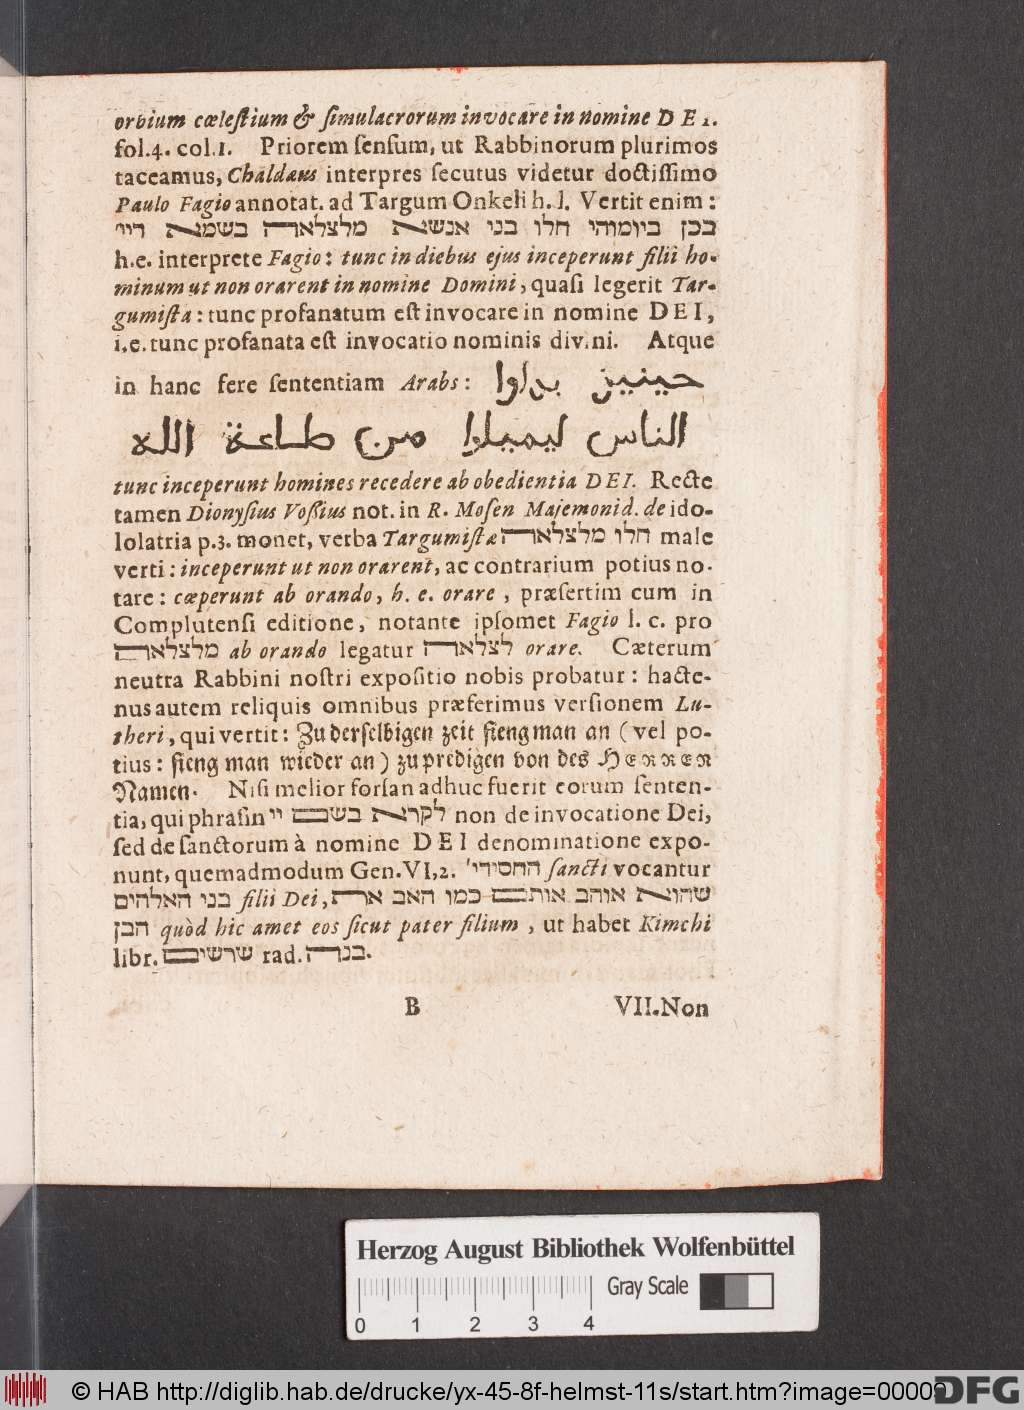 orbium cœlestium & simulacrorum invocare in nomine DEI.
fol.4. col.1. Priorem sensum, ut Rabbinorum plurimos
taceamus, Chaldæus interpres secutus videtur doctissimo
Paulo Fagio annotat. ad Targum Onkeli h. l. Vertit enim:
בכן ביומוהי חלו בני אנשא מלצלאה בשמא דיי
h.e. interprete Fagio: tunc in diebus ejus inceperunt filii ho-
minum ut non orarent in nomine Domini, quasi legerit Tar-
gumista: tunc profanatum est invocare in nomine DEI,
i.e. tunc profanata est invocatio nominis divini. Atque
in hanc fere sententiam Arabs: حينين بداوا
الناس ليميلوا من طاعة الله
tunc inceperunt homines recedere ab obedientia DEI. Recte
tamen Dionysius Vossius not. in R. Mosen Majemonid. de ido-
lolatria p.3. monet, verba Targumistæ חלו מלצלאה male
verti: inceperunt ut non orarent, ac contrarium potius no-
tare: cœperunt ab orando, h. e. orare, præsertim cum in
Complutensi editione, notante ipsomet Fagio l. c. pro
מלצלאה ab orando legatur לצלאה orare. Cæterum
neutra Rabbini nostri expositio nobis probatur: hacte-
nus autem reliquis omnibus præferimus versionem Lu-
theri, qui vertit: Zu derselbigen zeit fieng man an (vel po-
tius: fieng man wieder an) zu predigen von des HERREN
Namen. Nisi melior forsan adhuc fuerit eorum senten-
tia, qui phrasin לקרא בשם יי non de invocatione Dei,
sed de sanctorum à nomine DEI denominatione expo-
nunt, quemadmodum Gen. VI, 2. החסידי' sancti vocantur
בני האלהים filii Dei, שהוא אוהב אותם כמו האב את
הבן quòd hic amet eos sicut pater filium, ut habet Kimchi
libr. שרשים rad. בנה.
B VII. Non
Herzog August Bibliothek Wolfenbüttel
Gray Scale
0 1 2 3 4
© HAB http://diglib.hab.de/drucke/yx-45-8f-helmst-11s/start.htm?image=00009
DFG